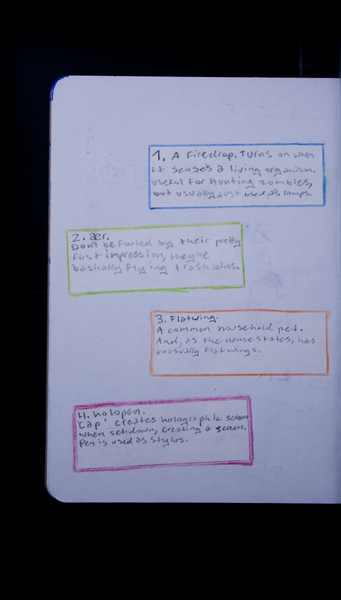 1. A Firedrop. Turns on when
it senses a living organism.
Useful for hunting zombies,
but usually just used as lamps.
2. aer.
Don't be fooled by their pretty
first impression, they're
basically flying trashbins.
3. Flatwing.
A common household pet.
And, as the name states, has
unusually flat wings.
4. holopen.
'Cap' creates holographic screen
when setdown, creating a screen.
Pen is used as stylus.